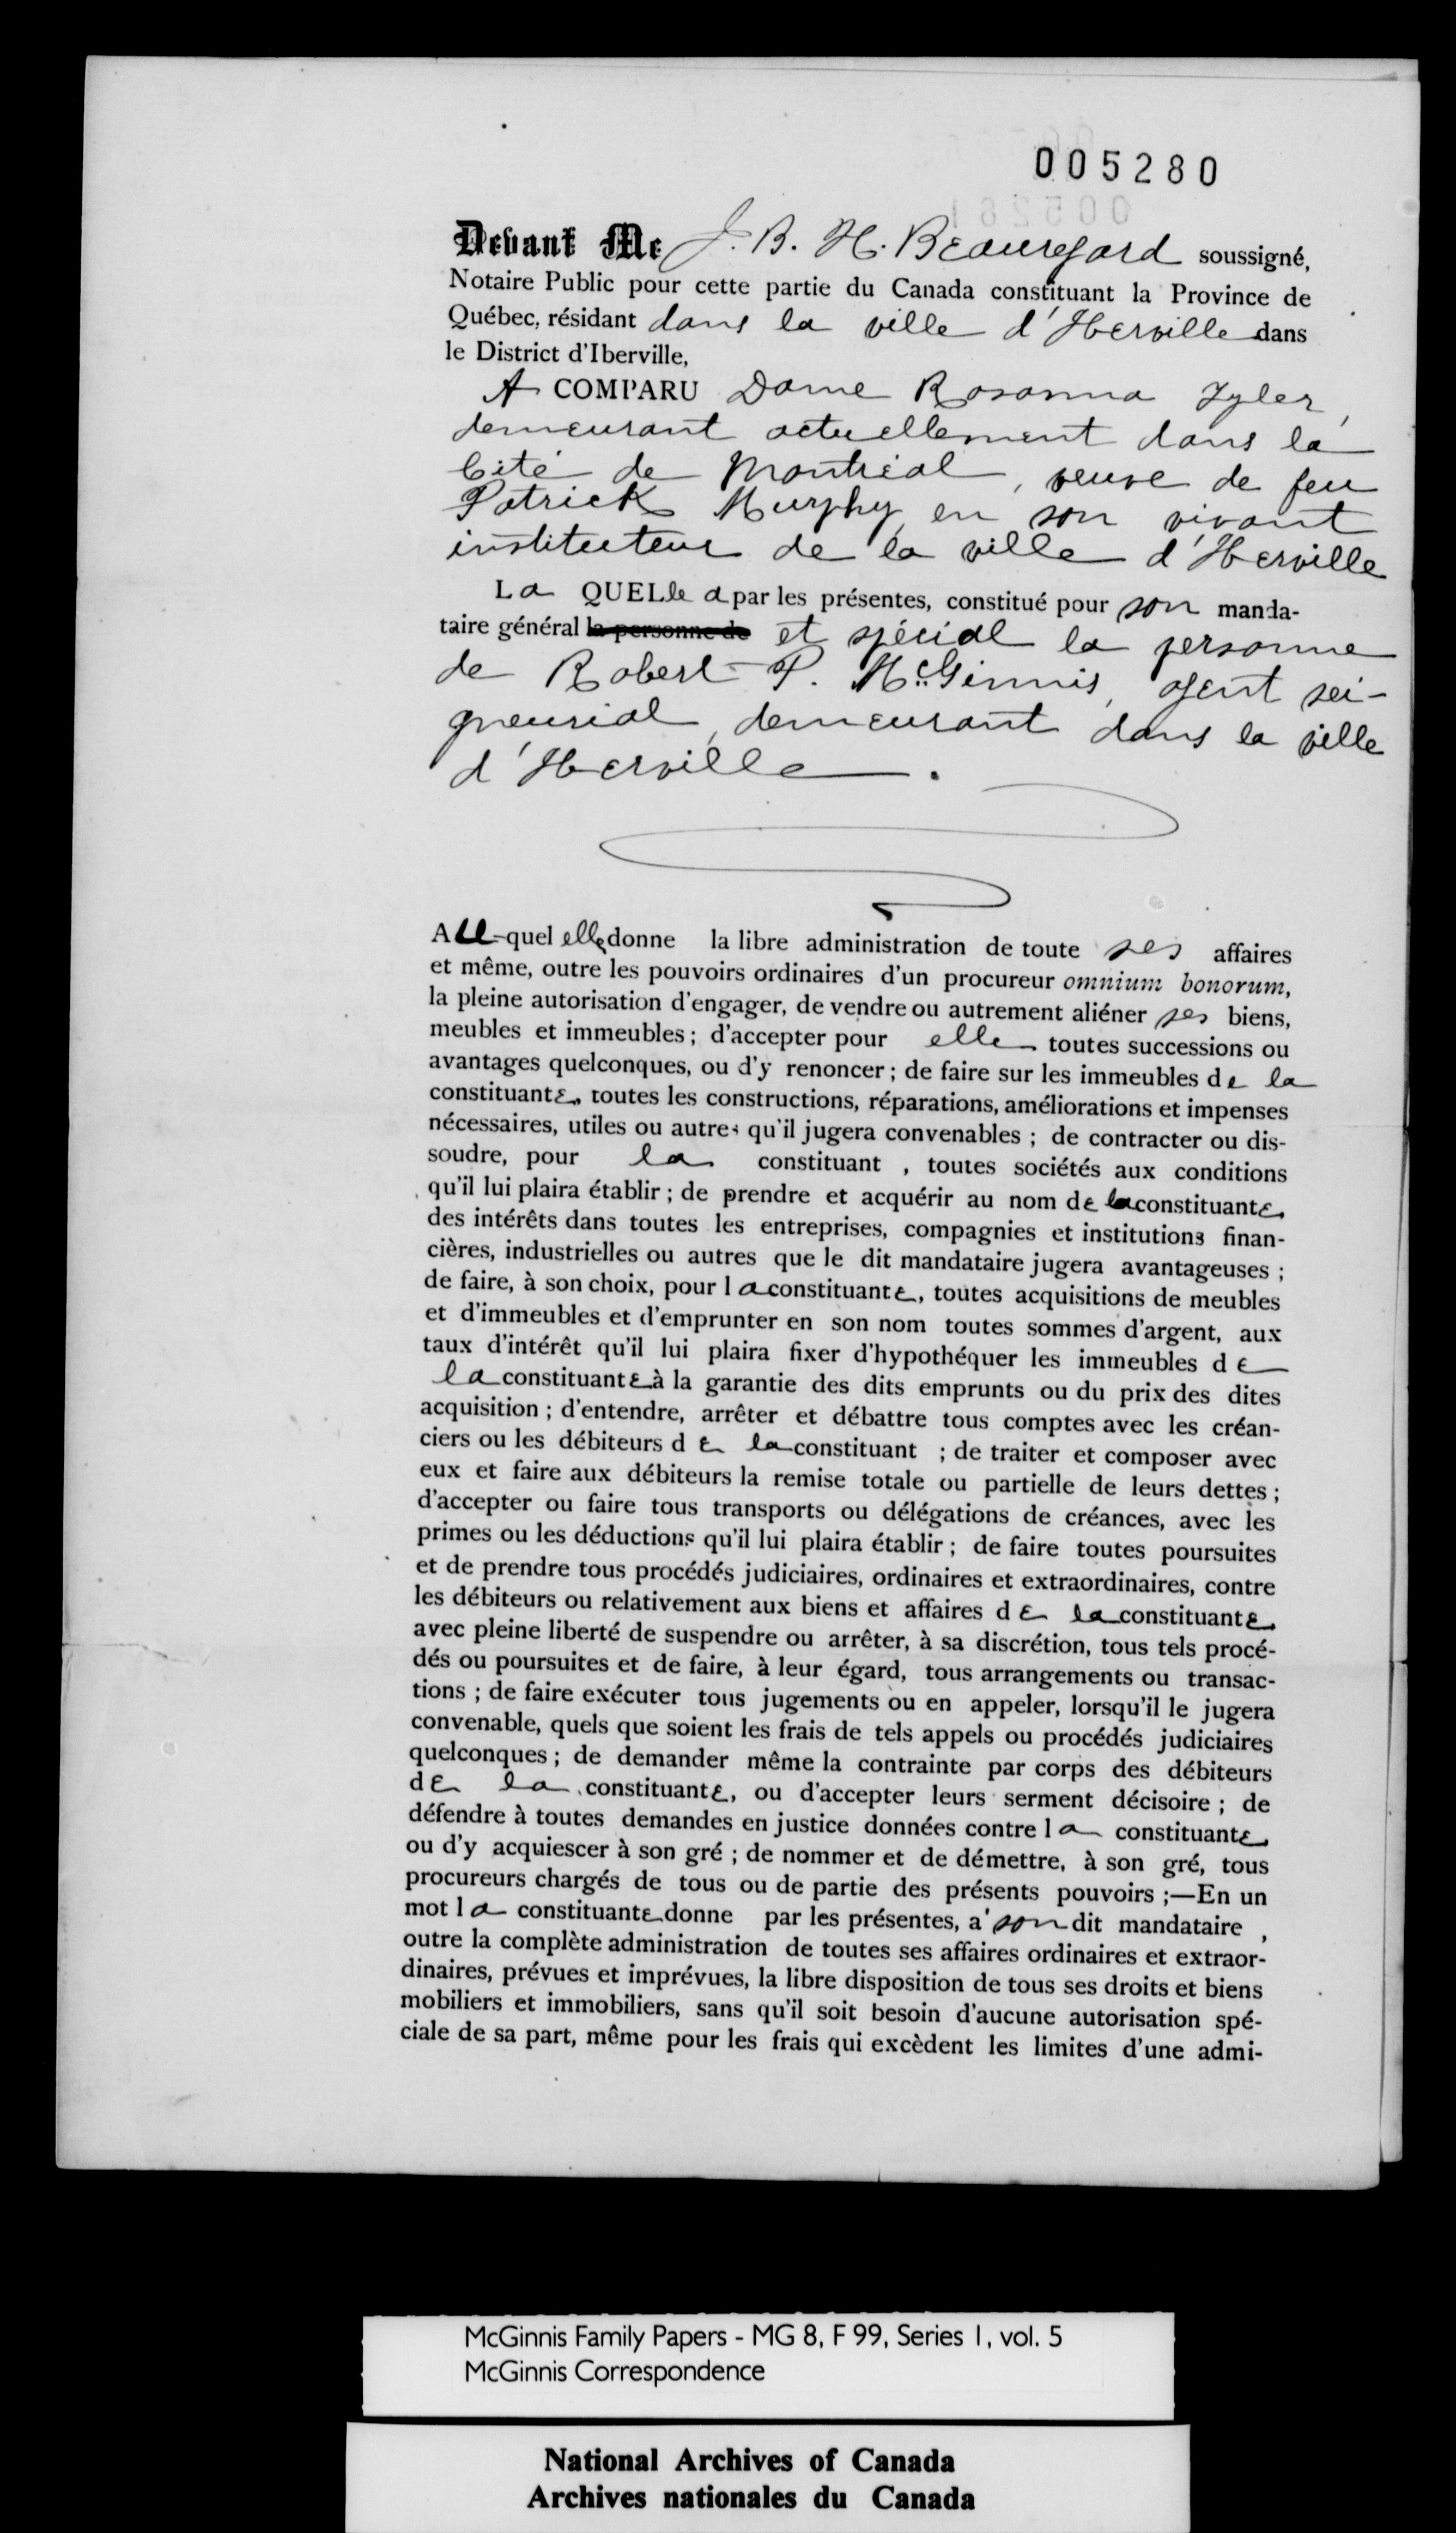 005280
Devant Me J. B. H. Beauregard soussigné,
Notaire Public pour cette partie du Canada constituant la Province de
Québec, résidant dans la ville d'Iberville dans
le District d'Iberville,
A COMPARU Dame Rosanna Tyler,
demeurant actuellement dans la
Cité de Montréal, veuve de feu
Patrick Murphy, en son vivant
instituteur de la ville d'Iberville
La QUELLe a par les présentes, constitué pour son manda-
taire général la personne de et spécial la personne
de Robert P. McGinnis, agent sei-
gneurial, demeurant dans la ville
d'Iberville.
Au-quel elle donne la libre administration de toute ses affaires
et même, outre les pouvoirs ordinaires d'un procureur omnium bonorum,
la pleine autorisation d'engager, de vendre ou autrement aliéner ses biens,
meubles et immeubles ; d'accepter pour elle toutes successions ou
avantages quelconques, ou d'y renoncer ; de faire sur les immeubles de la
constituante, toutes les constructions, réparations, améliorations et impenses
nécessaires, utiles ou autres qu'il jugera convenables ; de contracter ou dis-
soudre, pour la constituant , toutes sociétés aux conditions
qu'il lui plaira établir ; de prendre et acquérir au nom de la constituante,
des intérêts dans toutes les entreprises, compagnies et institutions finan-
cières, industrielles ou autres que le dit mandataire jugera avantageuses ;
de faire, à son choix, pour la constituante, toutes acquisitions de meubles
et d'immeubles et d'emprunter en son nom toutes sommes d'argent, aux
taux d'intérêt qu'il lui plaira fixer d'hypothéquer les immeubles de
la constituante à la garantie des dits emprunts ou du prix des dites
acquisition ; d'entendre, arrêter et débattre tous comptes avec les créan-
ciers ou les débiteurs de la constituant ; de traiter et composer avec
eux et faire aux débiteurs la remise totale ou partielle de leurs dettes ;
d'accepter ou faire tous transports ou délégations de créances, avec les
primes ou les déductions qu'il lui plaira établir ; de faire toutes poursuites
et de prendre tous procédés judiciaires, ordinaires et extraordinaires, contre
les débiteurs ou relativement aux biens et affaires de la constituante,
avec pleine liberté de suspendre ou arrêter, à sa discrétion, tous tels procé-
dés ou poursuites et de faire, à leur égard, tous arrangements ou transac-
tions ; de faire exécuter tous jugements ou en appeler, lorsqu'il le jugera
convenable, quels que soient les frais de tels appels ou procédés judiciaires
quelconques ; de demander même la contrainte par corps des débiteurs
de la constituante, ou d'accepter leurs serment décisoire ; de
défendre à toutes demandes en justice données contre la constituante,
ou d'y acquiescer à son gré ; de nommer et de démettre, à son gré, tous
procureurs chargés de tous ou de partie des présents pouvoirs ;—En un
mot la constituante donne par les présentes, a' son dit mandataire ,
outre la complète administration de toutes ses affaires ordinaires et extraor-
dinaires, prévues et imprévues, la libre disposition de tous ses droits et biens
mobiliers et immobiliers, sans qu'il soit besoin d'aucune autorisation spé-
ciale de sa part, même pour les frais qui excèdent les limites d'une admi-
McGinnis Family Papers - MG 8, F 99, Series 1, vol. 5
McGinnis Correspondence
National Archives of Canada
Archives nationales du Canada